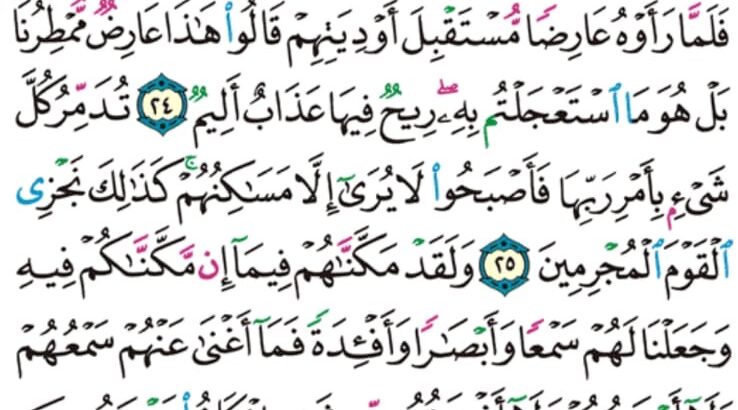 فَلَمَّا رَأَوْهُ عَارِضًا مُّسْتَقْبِلَ أَوْدِيَتِهِمْ قَالُوا۟ هَٰذَا عَارِضٌ مُّمْطِرُنَا
بَلْ هُوَ مَا ٱسْتَعْجَلْتُم بِهِۦ ۖ رِيحٌ فِيهَا عَذَابٌ أَلِيمٌ ٢٤ تُدَمِّرُ كُلَّ
شَىْءٍۭ بِأَمْرِ رَبِّهَا فَأَصْبَحُوا۟ لَا يُرَىٰٓ إِلَّا مَسَٰكِنُهُمْ ۚ كَذَٰلِكَ نَجْزِى
ٱلْقَوْمَ ٱلْمُجْرِمِينَ ٢٥ وَلَقَدْ مَكَّنَّٰهُمْ فِيمَآ إِن مَّكَّنَّٰكُمْ فِيهِ
وَجَعَلْنَا لَهُمْ سَمْعًا وَأَبْصَٰرًا وَأَفْـِٔدَةً فَمَآ أَغْنَىٰ عَنْهُمْ سَمْعُهُمْ